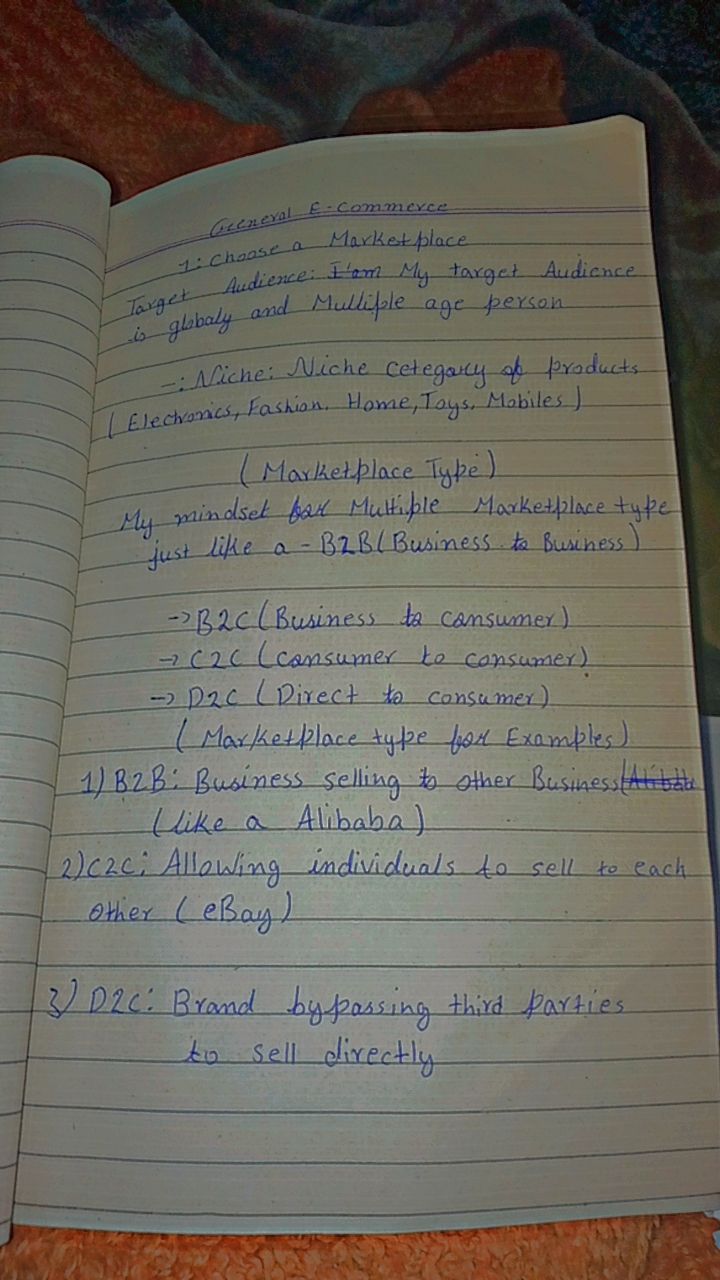 General E-Commerce
1: Choose a Marketplace
Target Audience: I'am My target Audience
is globaly and Multiple age person
-: Niche: Niche Cetegory of products
(Electronics, Fashion, Home, Toys, Mobiles)
(Marketplace Type)
My mindset for Multiple Marketplace type
just like a - B2B (Business to Business)
-> B2C (Business to consumer)
-> C2C (consumer to consumer)
-> D2C (Direct to consumer)
(Marketplace type for Examples)
1) B2B: Business selling to other Business (Alibaba
(like a Alibaba)
2) C2C: Allowing individuals to sell to each
other (eBay)
3) D2C: Brand bypassing third parties
to sell directly